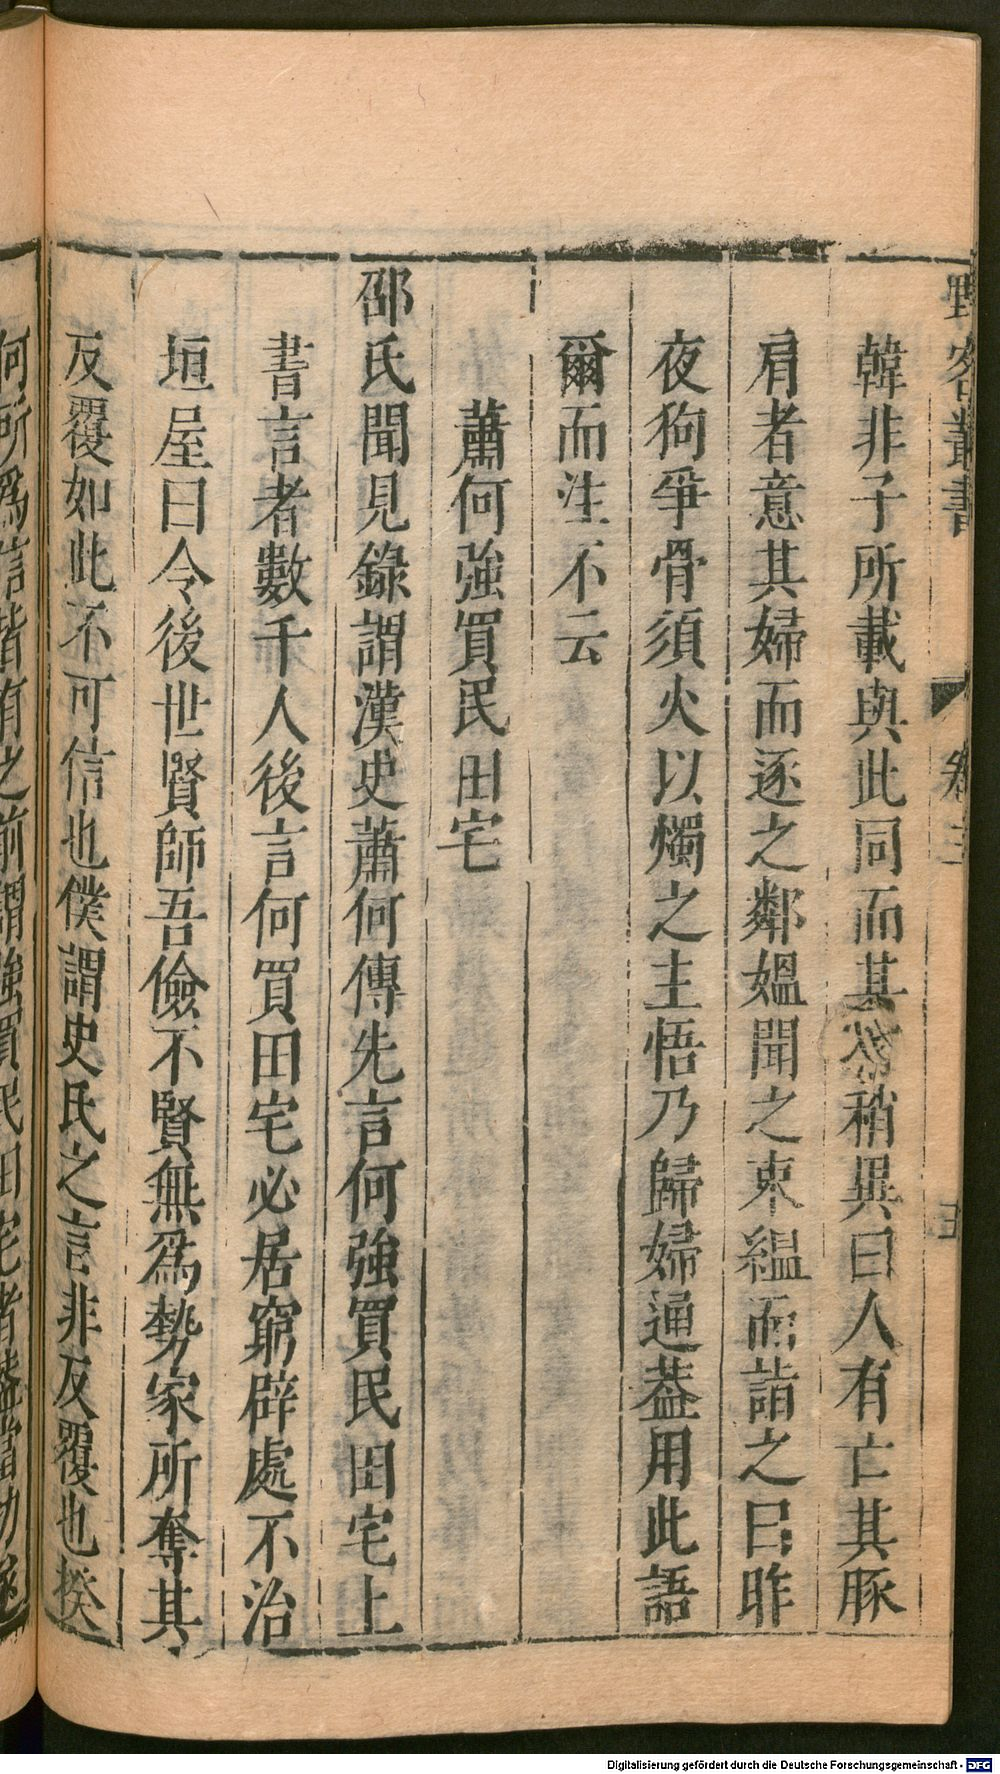 野客叢書 卷三 十五
韓非子所載與此同而其㳂稍異曰人有亡其豚
肩者意其婦而逐之鄰媼聞之束緼而詣之曰昨
夜狗爭骨須火以燭之主悟乃歸婦通葢用此語
爾而注不云
蕭何強買民田宅
邵氏聞見錄謂漢史蕭何傳先言何強買民田宅上
書言者數千人後言何買田宅必居窮辟處不治
垣屋曰令後世賢師吾儉不賢無爲勢家所奪其
反覆如此不可信也僕謂史氏之言非反覆也揆
何所爲信皆有之前謂強買民田宅者葢當
Digitalisierung gefördert durch die Deutsche Forschungsgemeinschaft - DFG